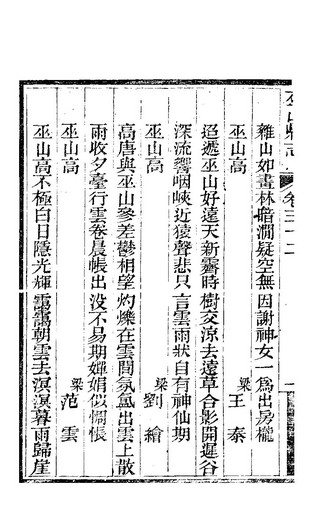 巫山縣志 卷三十二 一
雜山如畫林暗澗疑空無因謝神女一爲出房櫳
巫山高 梁 王泰
迢遞巫山好遠天新霽時樹交涼去遠草合影開遲谷
深流響咽峽近猿聲悲只言雲雨狀自有神仙期
巫山高 梁 劉繪
高唐與巫山參差鬱相望灼爍在雲間氛氳出雲上散
雨收夕臺行雲卷晨帳出沒不易期嬋娟似惆悵
巫山高 梁 范雲
巫山高不極白日隱光輝靄靄朝雲去溟溟暮雨歸崖